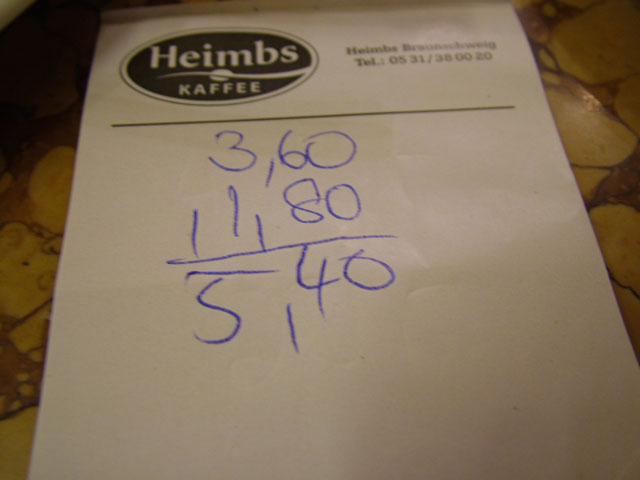 Heimbs
KAFFEE
Heimbs Braunschweig
Tel.: 05 31 / 38 00 20
3,60
11,80
5,40